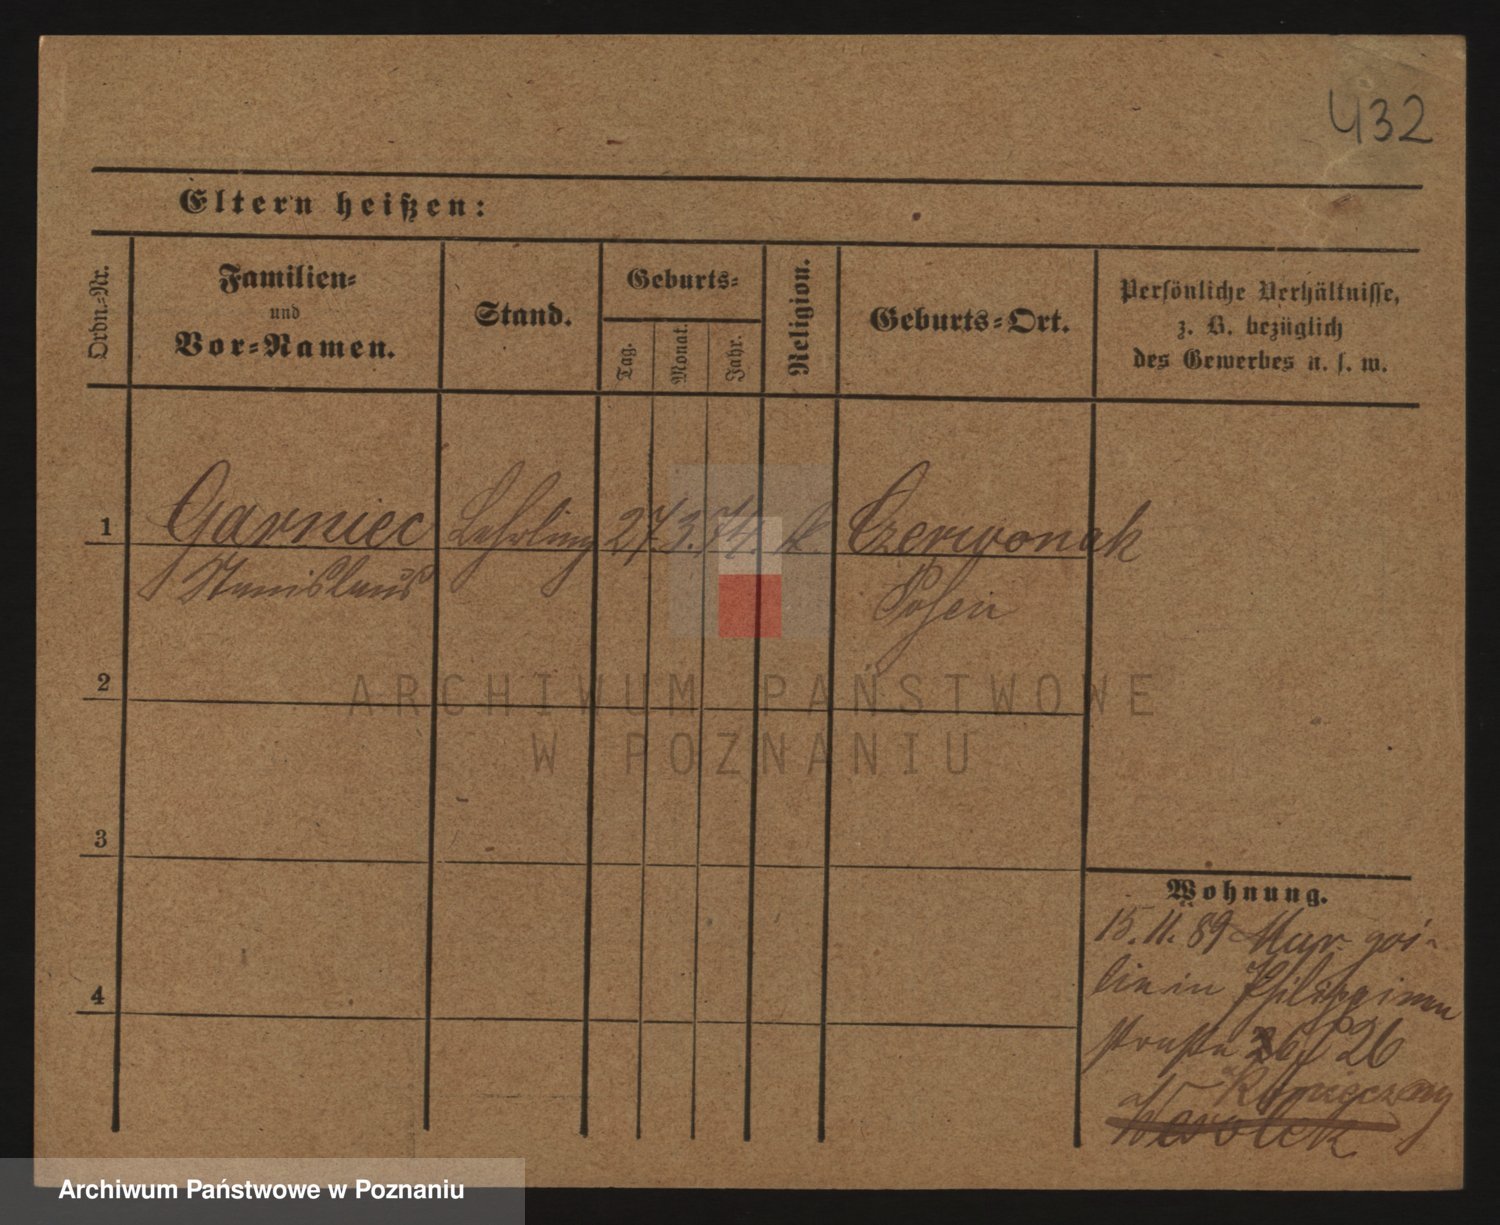 432
Eltern heißen:
Ordn.-Nr.
Familien-
und
Vor-Namen.
Stand.
Geburts-
Tag.
Monat.
Jahr.
Religion.
Geburts-Ort.
Persönliche Verhältnisse,
z. B. bezüglich
des Gewerbes u. s. w.
1 Garniec Lehrling 27. 3. 74. k. Czerwonak
Stanislaus Posen
2
ARCHIWUM PAŃSTWOWE
W POZNANIU
3
4
Wohnung.
15. 11. 89
in
straße 26
Konieczny
Wesolek
Archiwum Państwowe w Poznaniu